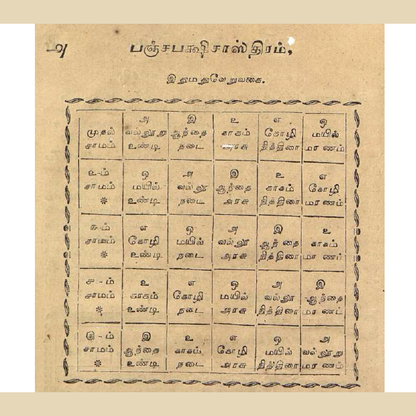 பஞ்சபக்ஷிசாஸ்திரம்.
இதுமதுவேறுவகை.
அ இ உ எ ஒ
முதல் வல்லூறு ஆந்தை காகம் கோழி மயில்
சாமம் உண்டி நடை அரசு நித்திரை மரணம்
௨-ம் ஒ அ இ உ எ
சாமம் மயில் வல்லூ ஆந்தை காகம் கோழி
* உண்டி நடை அரசு நித்திரை மரணம்
௩-ம் எ ஒ அ இ உ
சாமம் கோழி மயில் வல்லூ ஆந்தை காகம்
* உண்டி நடை அரசு நித்திரை மரணம்
௪-ம் உ எ ஒ அ இ
சாமம் காகம் கோழி மயில் வல்லூ ஆந்தை
* உண்டி நடை அரசு நித்திரை மரணம்
௫-ம் இ உ எ ஒ அ
சாமம் ஆந்தை காகம் கோழி மயில் வல்லூறு
* உண்டி நடை அரசு நித்திரை மரணம்